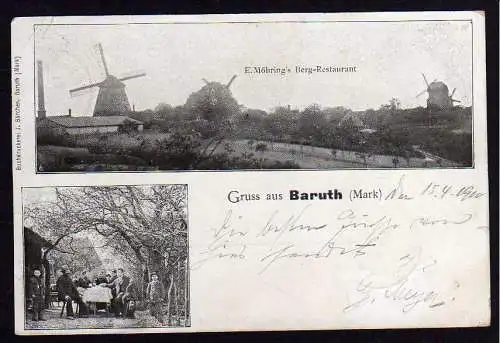 E. Möhring's Berg-Restaurant
Buchdruckerei J. Särchen, Baruth (Mark)
Gruss aus Baruth (Mark) den 15.4.1900
Die besten Grüsse von
hier sendet
G. Meyer